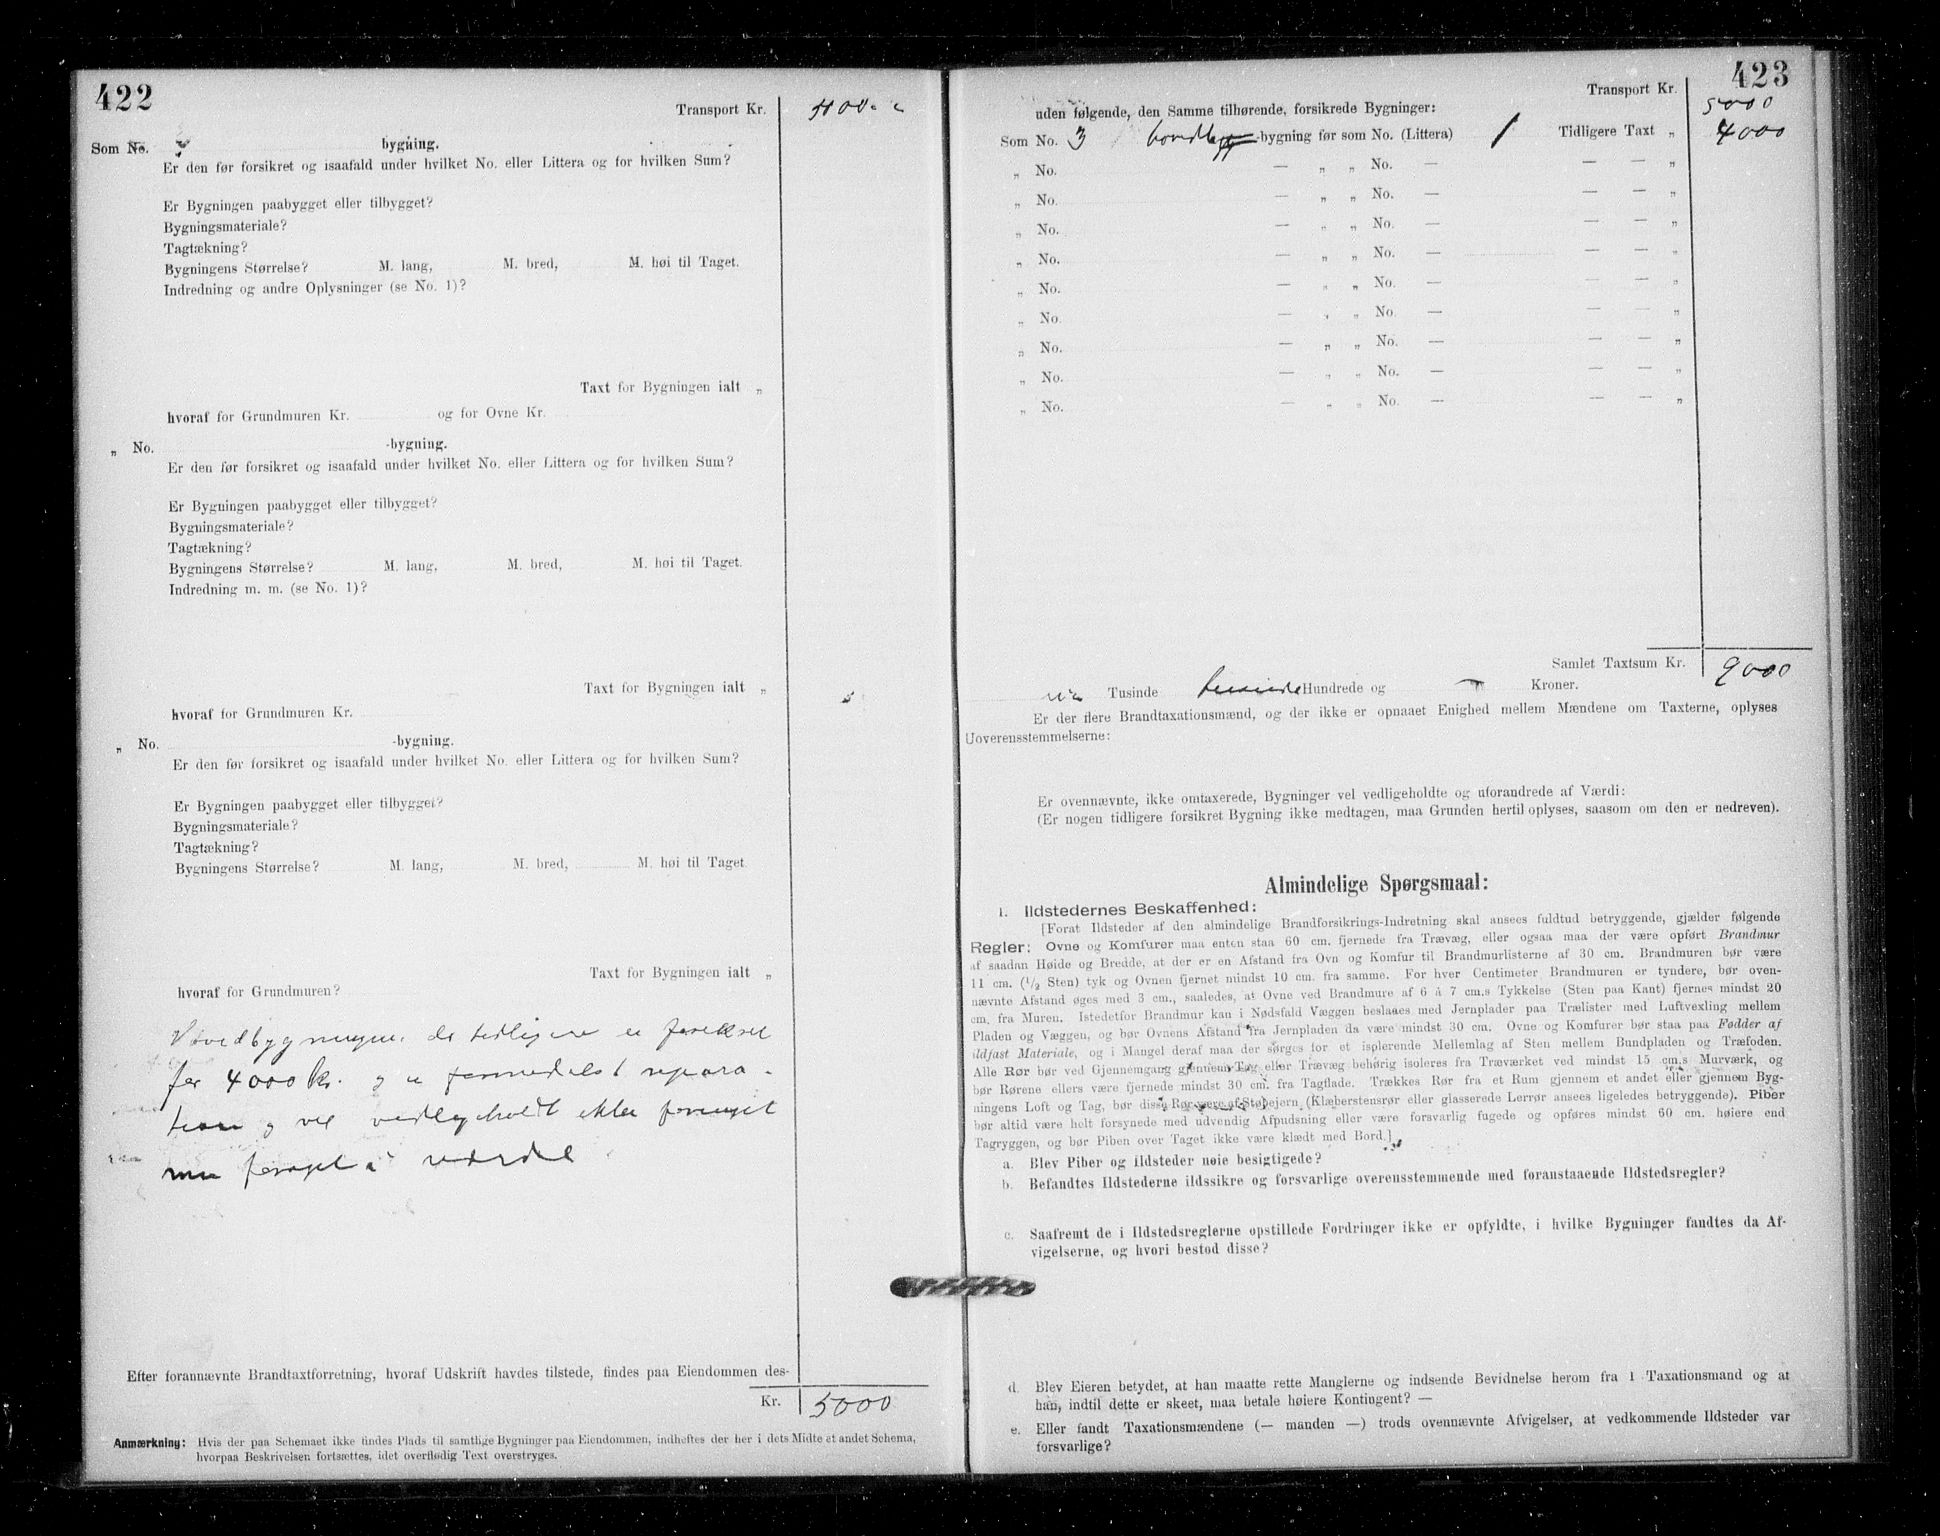 422
Transport Kr. 5000
Som No. 3 bygning.
Er den før forsikret og isaafald under hvilket No. eller Littera og for hvilken Sum?
Er Bygningen paabygget eller tilbygget?
Bygningsmateriale?
Tagtækning?
Bygningens Størrelse? M. lang, M. bred, M. høi til Taget.
Indredning og andre Oplysninger (se No. 1)?
Taxt for Bygningen ialt „
hvoraf for Grundmuren Kr. og for Ovne Kr.
„ No. -bygning.
Er den før forsikret og isaafald under hvilket No. eller Littera og for hvilken Sum?
Er Bygningen paabygget eller tilbygget?
Bygningsmateriale?
Tagtækning?
Bygningens Størrelse? M. lang, M. bred, M. høi til Taget.
Indredning m. m. (se No. 1)?
Taxt for Bygningen ialt „
hvoraf for Grundmuren Kr.
„ No. -bygning.
Er den før forsikret og isaafald under hvilket No. eller Littera og for hvilken Sum?
Er Bygningen paabygget eller tilbygget?
Bygningsmateriale?
Tagtækning?
Bygningens Størrelse? M. lang, M. bred, M. høi til Taget.
Taxt for Bygningen ialt „
hvoraf for Grundmuren?
Hovedbygningen der tidligere er forsikret
for 4000 kr. og er formedelst repara-
tion og vel vedligeholdt ikke foringet
men forøget i værdi
Efter forannævnte Brandtaxtforretning, hvoraf Udskrift havdes tilstede, findes paa Eiendommen des-
Kr. 5000
Anmærkning: Hvis der paa Schemaet ikke findes Plads til samtlige Bygninger paa Eiendommen, indheftes der her i dets Midte et andet Schema,
hvorpaa Beskrivelsen fortsættes, idet overflødig Text overstryges.
423
Transport Kr. 5000
uden følgende, den Samme tilhørende, forsikrede Bygninger:
Som No. 3 hovedbygg -bygning før som No. (Littera) 1 Tidligere Taxt „ 4000
„ No. — „ „ No. — — — „
„ No. — „ „ No. — — — „
„ No. — „ „ No. — — — „
„ No. — „ „ No. — — — „
„ No. — „ „ No. — — — „
„ No. — „ „ No. — — — „
„ No. — „ „ No. — — — „
„ No. — „ „ No. — — — „
„ No. — „ „ No. — — — „
Samlet Taxtsum Kr. 9000
ni Tusinde Hundrede og — Kroner.
Er der flere Brandtaxationsmænd, og der ikke er opnaaet Enighed mellem Mændene om Taxterne, oplyses
Uoverensstemmelserne:
Er ovennævnte, ikke omtaxerede, Bygninger vel vedligeholdte og uforandrede af Værdi:
(Er nogen tidligere forsikret Bygning ikke medtagen, maa Grunden hertil oplyses, saasom om den er nedreven).
Almindelige Spørgsmaal:
1. Ildstedernes Beskaffenhed:
[Forat Ildsteder af den almindelige Brandforsikrings-Indretning skal ansees fuldtud betryggende, gjælder følgende
Regler: Ovne og Komfurer maa enten staa 60 cm. fjernede fra Trævæg, eller ogsaa maa der være opført Brandmur
af saadan Høide og Bredde, at der er en Afstand fra Ovn og Komfur til Brandmurlisterne af 30 cm. Brandmuren bør være
11 cm. (1/2 Sten) tyk og Ovnen fjernet mindst 10 cm. fra samme. For hver Centimeter Brandmuren er tyndere, bør oven-
nævnte Afstand øges med 3 cm., saaledes, at Ovne ved Brandmure af 6 à 7 cm.s Tykkelse (Sten paa Kant) fjernes mindst 20
cm. fra Muren. Istedetfor Brandmur kan i Nødsfald Væggen beslaaes med Jernplader paa Trælister med Luftvexling mellem
Pladen og Væggen, og bør Ovnens Afstand fra Jernpladen da være mindst 30 cm. Ovne og Komfurer bør staa paa Fødder af
ildfast Materiale, og i Mangel deraf maa der sørges for et isolerende Mellemlag af Sten mellem Bundpladen og Træfoden.
Alle Rør bør ved Gjennemgang gjennem Tag eller Trævæg behørig isoleres fra Træværket ved mindst 15 cm.s Murværk, og
bør Rørene ellers være fjernede mindst 30 cm. fra Tagflade. Trækkes Rør fra et Rum gjennem et andet eller gjennem Byg-
ningens Loft og Tag, bør disse Rør være af Støbejern (Klæberstensrør eller glasserede Lerrør ansees ligeledes betryggende). Piber
bør altid være helt forsynede med udvendig Afpudsning eller være forsvarlig fugede og opføres mindst 60 cm. høiere end
Tagryggen, og bør Piben over Taget ikke være klædt med Bord.]
a. Blev Piber og Ildsteder nøie besigtigede?
b. Befandtes Ildstederne ildssikre og forsvarlige overensstemmende med foranstaaende Ildstedsregler?
c. Saafremt de i Ildstedsreglerne opstillede Fordringer ikke er opfyldte, i hvilke Bygninger fandtes da Af-
vigelserne, og hvori bestod disse?
d. Blev Eieren betydet, at han maatte rette Manglerne og indsende Bevidnelse herom fra 1 Taxationsmand og at
han, indtil dette er skeet, maa betale høiere Kontingent? —
e. Eller fandt Taxationsmændene (— manden —) trods ovennævnte Afvigelser, at vedkommende Ildsteder var
forsvarlige?